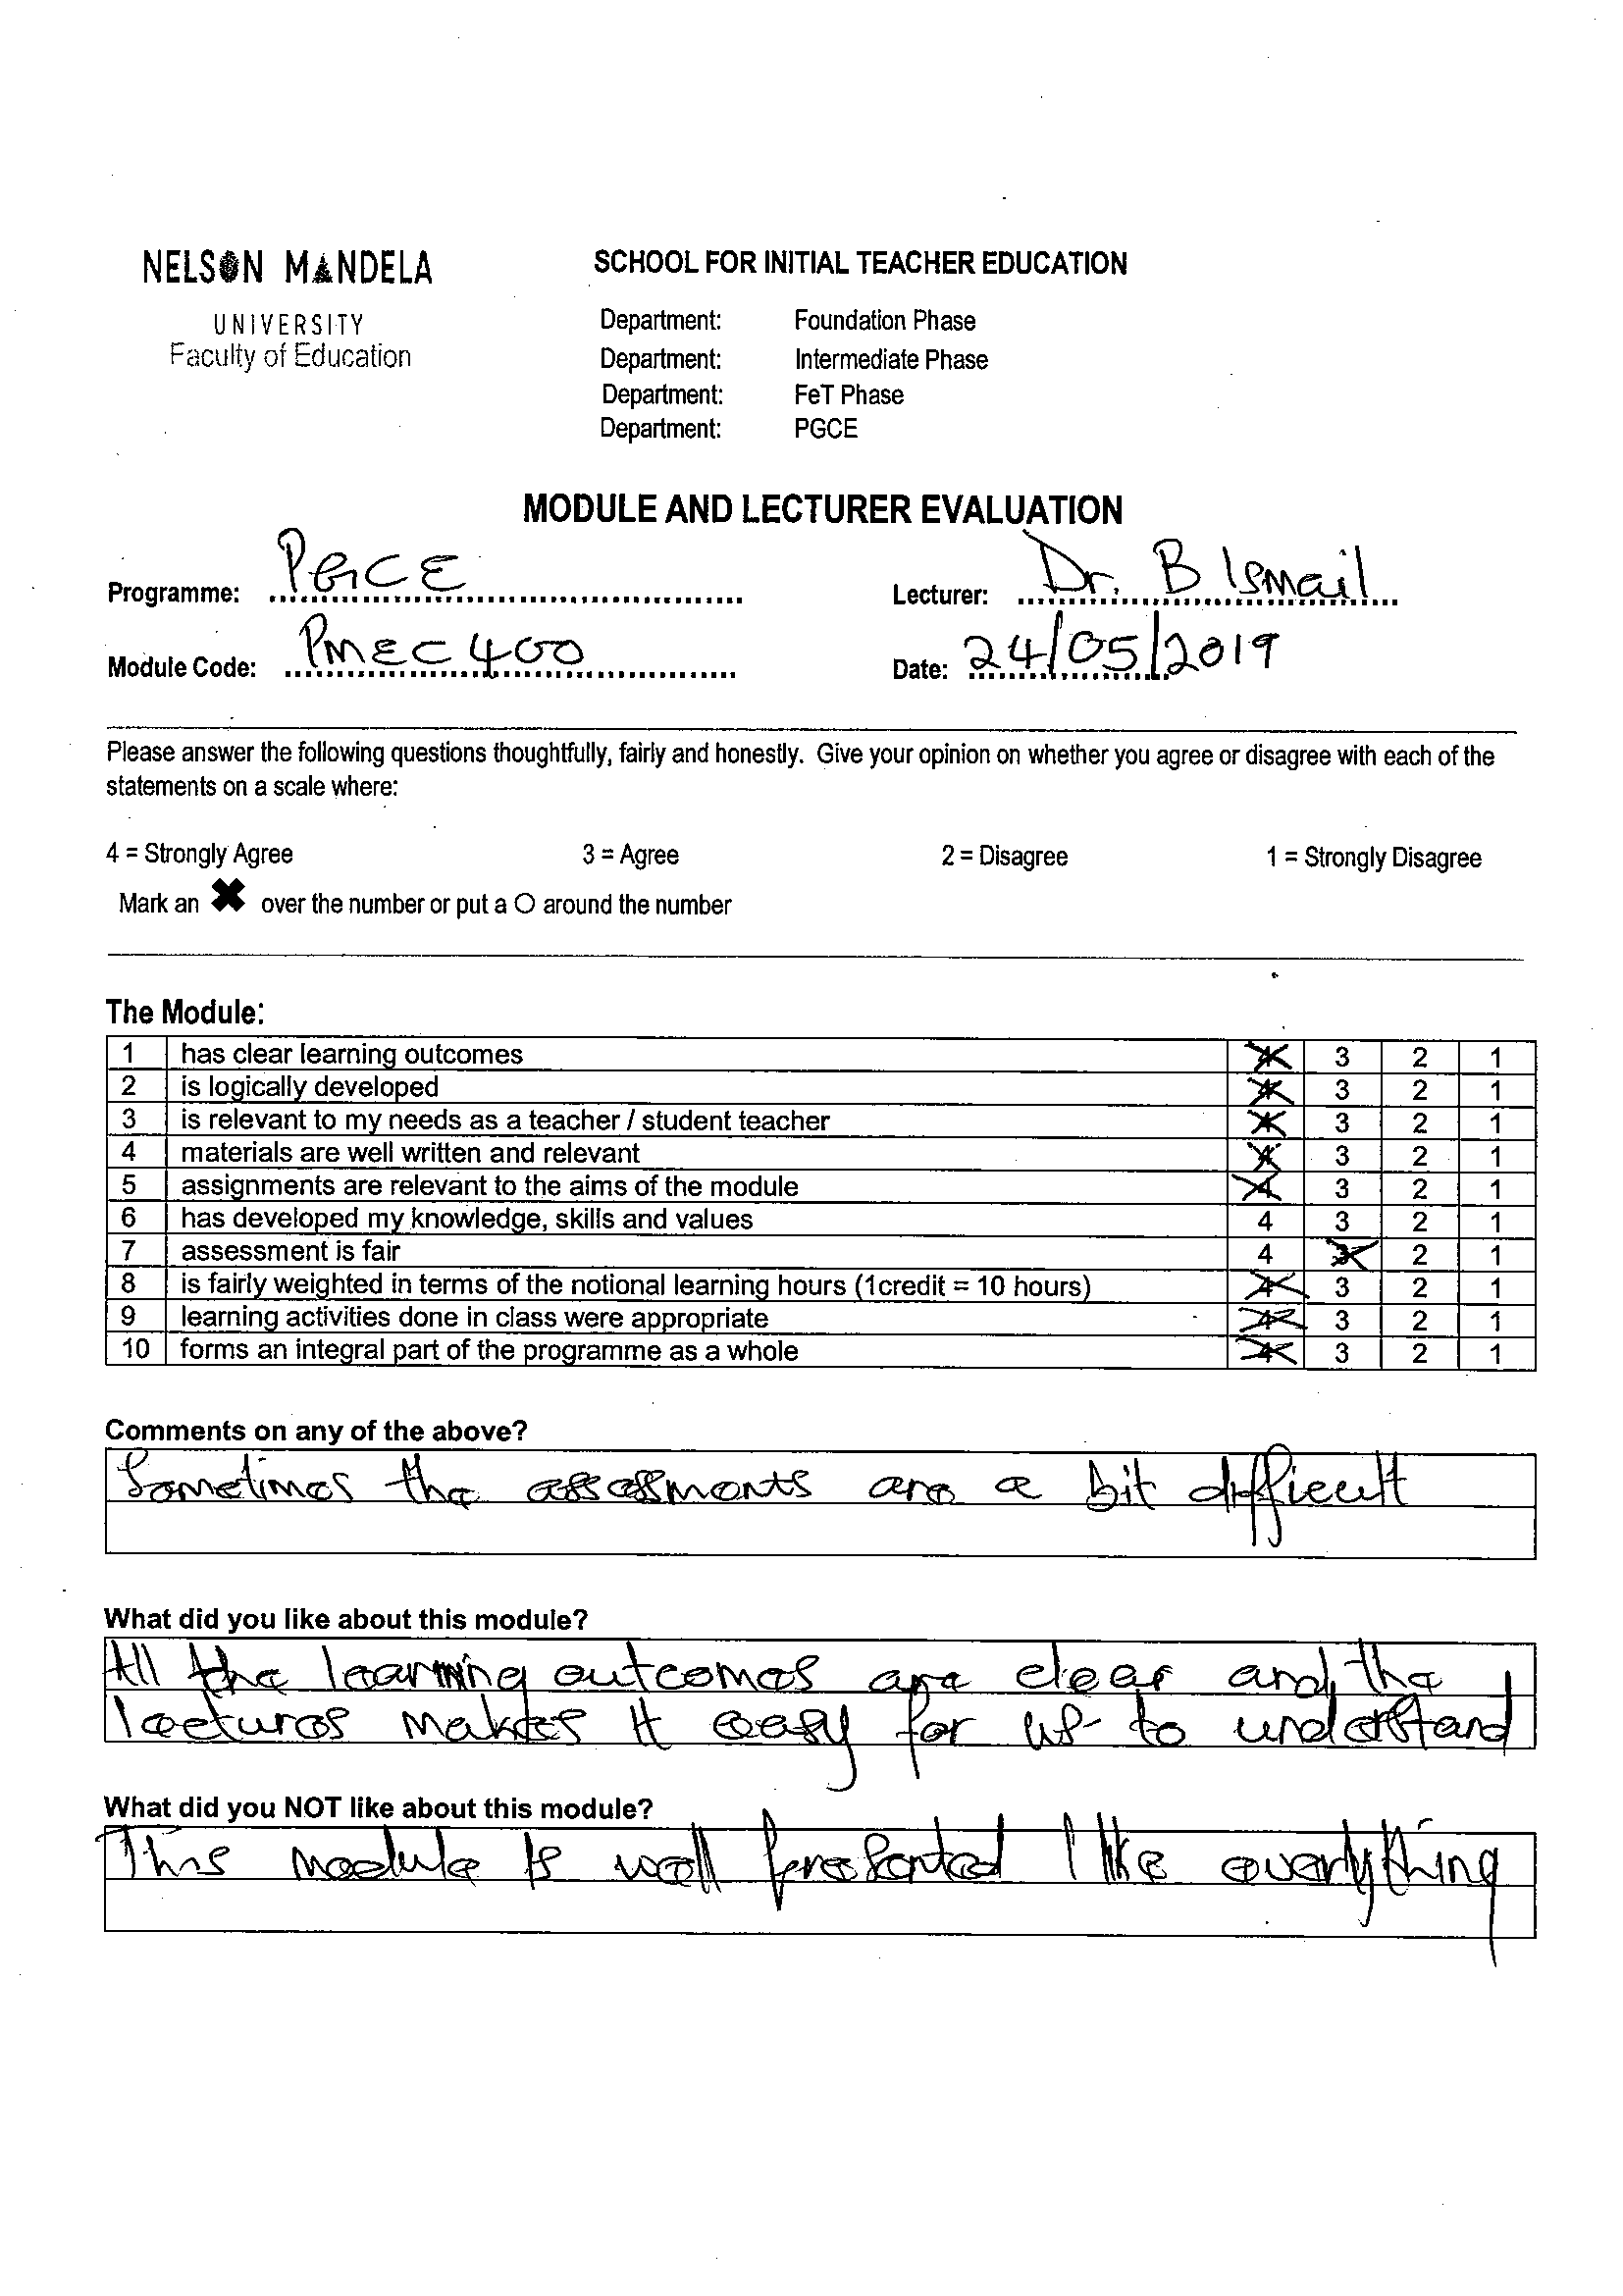 NELSON MANDELA
UNIVERSITY
Faculty of Education
SCHOOL FOR INITIAL TEACHER EDUCATION
Department: Foundation Phase
Department: Intermediate Phase
Department: FeT Phase
Department: PGCE
MODULE AND LECTURER EVALUATION
Programme: PGCE
Lecturer: Dr. B Ismail
Module Code: PMEC400
Date: 24/05/2019
Please answer the following questions thoughtfully, fairly and honestly. Give your opinion on whether you agree or disagree with each of the
statements on a scale where:
4 = Strongly Agree 3 = Agree 2 = Disagree 1 = Strongly Disagree
Mark an ✖ over the number or put a O around the number
The Module:
1 has clear learning outcomes 4 3 2 1
2 is logically developed 4 3 2 1
3 is relevant to my needs as a teacher / student teacher 4 3 2 1
4 materials are well written and relevant 4 3 2 1
5 assignments are relevant to the aims of the module 4 3 2 1
6 has developed my knowledge, skills and values 4 3 2 1
7 assessment is fair 4 3 2 1
8 is fairly weighted in terms of the notional learning hours (1credit = 10 hours) 4 3 2 1
9 learning activities done in class were appropriate 4 3 2 1
10 forms an integral part of the programme as a whole 4 3 2 1
Comments on any of the above?
Sometimes the assessments are a bit difficult
What did you like about this module?
All the learning outcomes are clear and the
lectures makes it easy for us to understand
What did you NOT like about this module?
This module is well presented I like everything